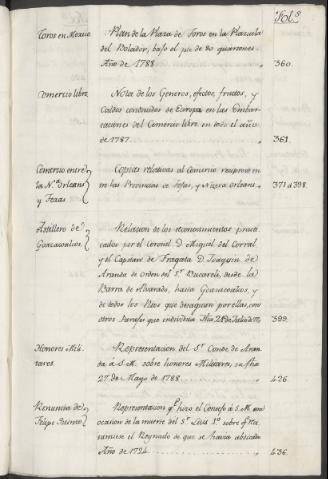 Fol.s
Toros en Mexico
Plan de la Plaza de Toros en la Plazuela
del Bolador, baxo el pie de 80 quarrones.
Año de 1788.
360.
Comercio libre,
Nota de los Generos, efectos, frutos, y
Caldos conducidos de Europa en las Embar-
caciones del Comercio libre en todo el año
de 1787.
361.
Comercio entre
la N.a Orleans
y Texas
Copias relativas al Comercio reciproco en-
tre las Provincias de Texas, y Nueva Orleans.
371 á 398.
Astillero de
Goacacoalcos.
Relacion de los reconocimientos practi-
cados por el Coronel D. Miguel del Corral,
y el Capitan de Fragata D. Joaquin de
Aranda de orden del S.r Bucareli, desde la
Barra de Alvarado, hasta Goacacoalcos, y
de todos los Rios que desaguan por ellas, con
otros parajes que individua. Año
399.
Honores Mili-
tares
Representacion del S.r Conde de Aran-
da á S.M. sobre honores Militares, su fha
27 de Mayo de 1788.
426.
Renuncia de
Felipe Quinto
Representacion q.e hizo el Consejo á S.M. con
ocasion de la muerte del S.r Luis 1.o sobre q.e Re-
asumiese el Reynado de que se havia abdicado
Año de 1724.
436.